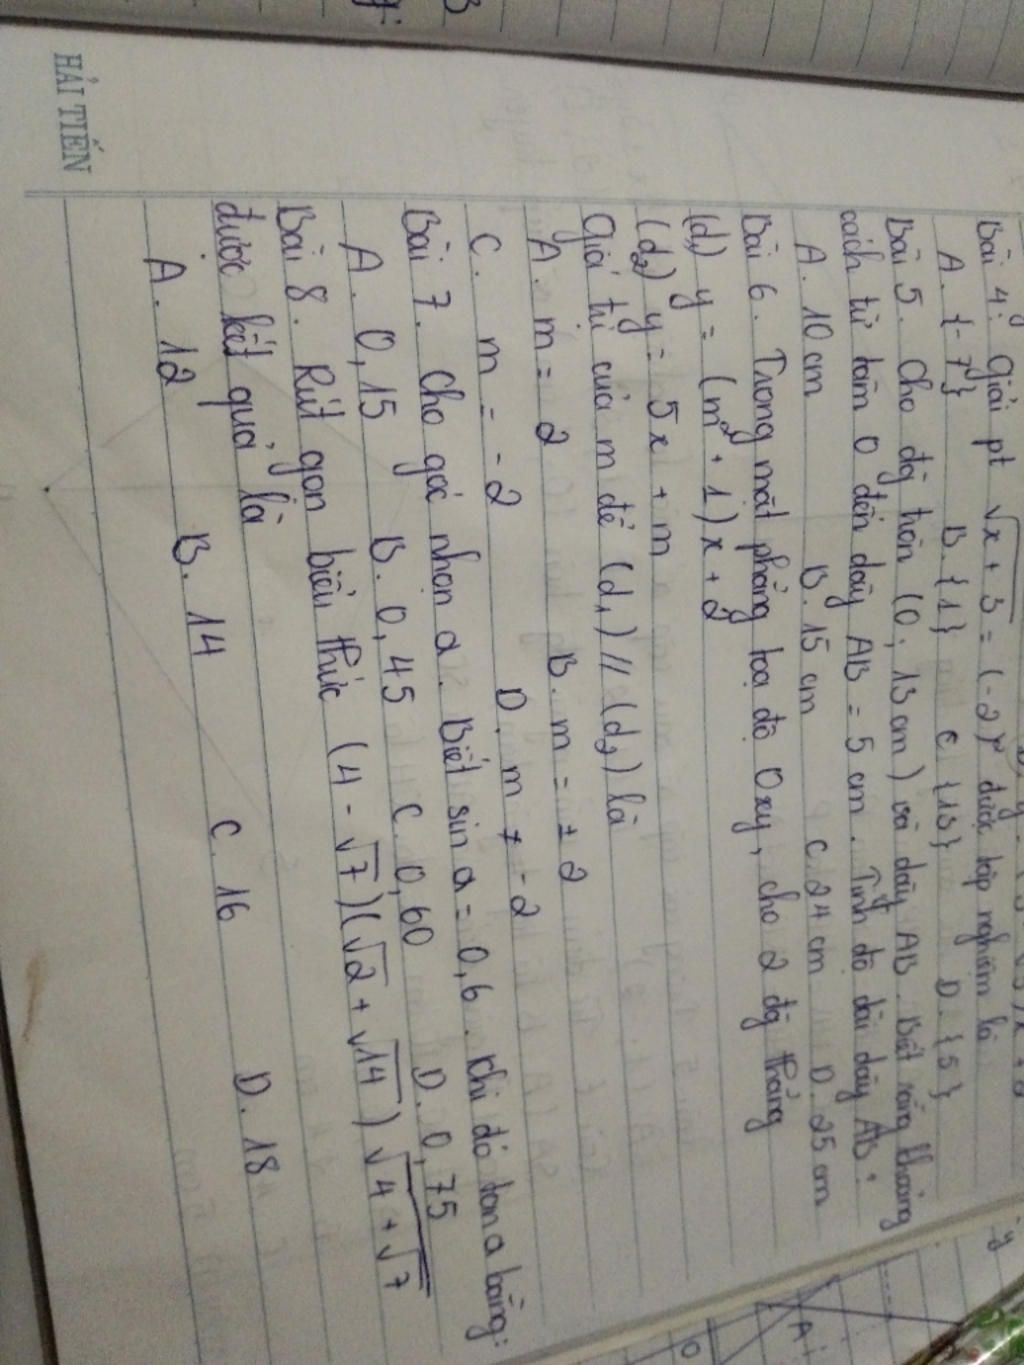 Bài 4: Giải pt √x + 3 = (-2)² được tập nghiệm là
A. {-7} B. {1} C {13} D. {5}
Bài 5. Cho đg tròn (O; 13 cm) và dây AB. Biết rằng khoảng
cách từ tâm O đến dây AB = 5 cm. Tính độ dài dây AB:
A. 10 cm B. 15 cm C. 24 cm D. 25 cm
Bài 6. Trong mặt phẳng toạ độ Oxy, cho 2 đg thẳng
(d₁) y = (m² + 1)x + 2
(d₂) y = 5x + m
Giá trị của m để (d₁) // (d₂) là
A. m = 2 B. m = ± 2
C. m = - 2 D. m ≠ - 2
Bài 7. Cho góc nhọn a. Biết sin a = 0,6. Khi đó tan a bằng:
A. 0,15 B. 0,45 C. 0,60 D. 0,75
Bài 8. Rút gọn biểu thức (4 - √7)(√2 + √14) √4 + √7
được kết quả là
A. 12 B. 14 C. 16 D. 18
HẢI TIẾN